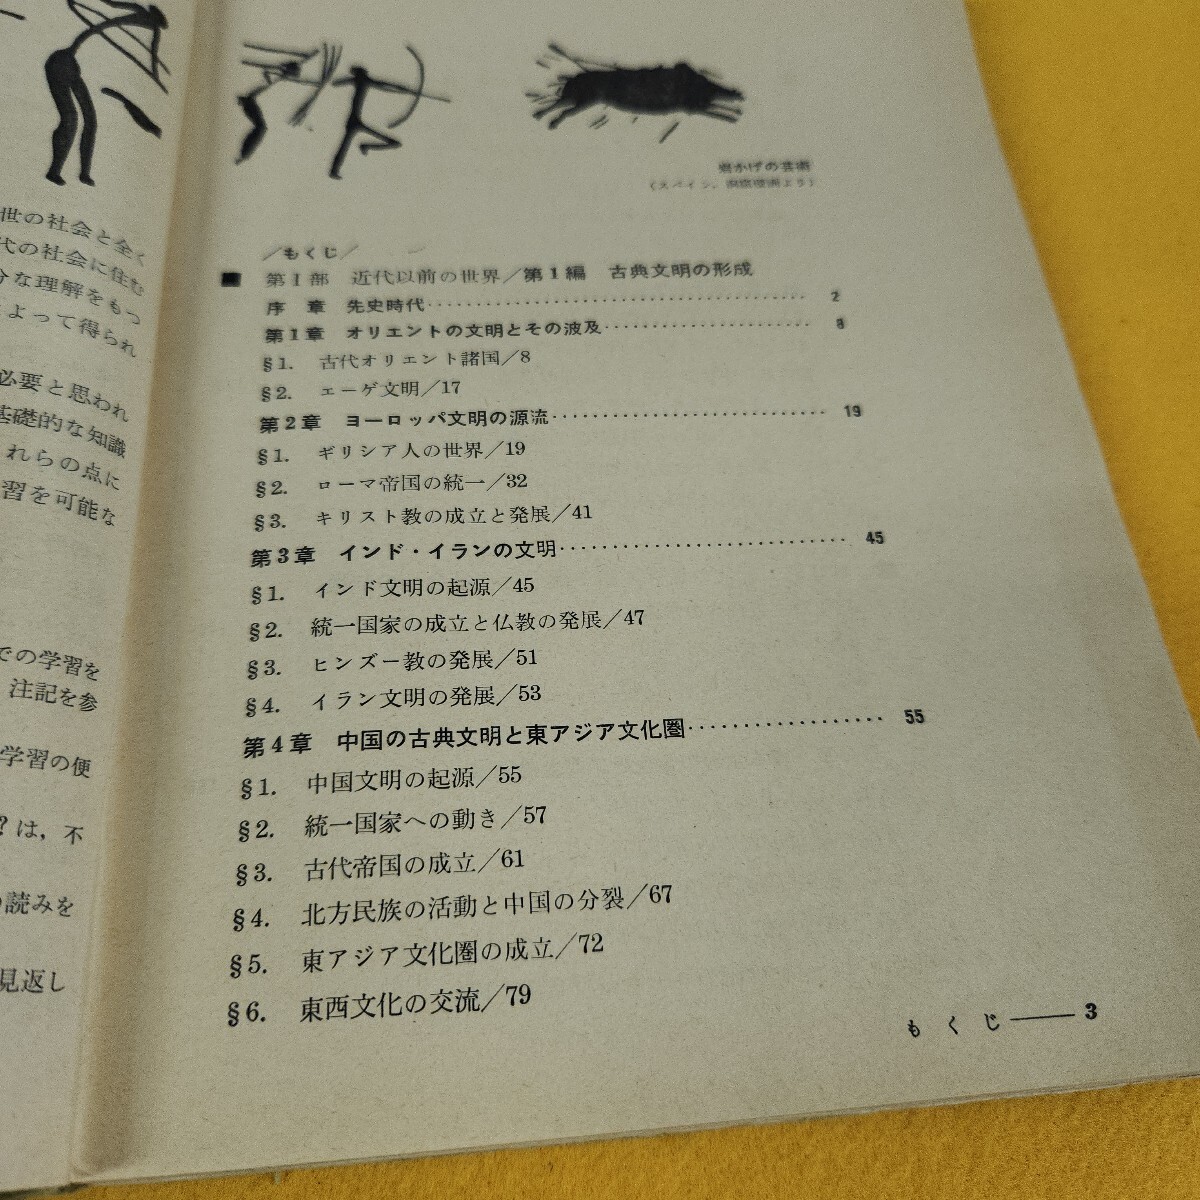 世の社会と全く
代の社会に住む
分な理解をもつ
よって得られ
必要と思われ
基礎的な知識
れらの点に
習を可能な
での学習を
注記を参
学習の便
?は，不
読みを
見返し
岩かげの芸術
(スペイン，洞窟壁画より)
／もくじ／
■ 第1部 近代以前の世界／第1編 古典文明の形成
序 章 先史時代 2
第1章 オリエントの文明とその波及 8
§1. 古代オリエント諸国／8
§2. エーゲ文明／17
第2章 ヨーロッパ文明の源流 19
§1. ギリシア人の世界／19
§2. ローマ帝国の統一／32
§3. キリスト教の成立と発展／41
第3章 インド・イランの文明 45
§1. インド文明の起源／45
§2. 統一国家の成立と仏教の発展／47
§3. ヒンズー教の発展／51
§4. イラン文明の発展／53
第4章 中国の古典文明と東アジア文化圏 55
§1. 中国文明の起源／55
§2. 統一国家への動き／57
§3. 古代帝国の成立／61
§4. 北方民族の活動と中国の分裂／67
§5. 東アジア文化圏の成立／72
§6. 東西文化の交流／79
もくじ——3